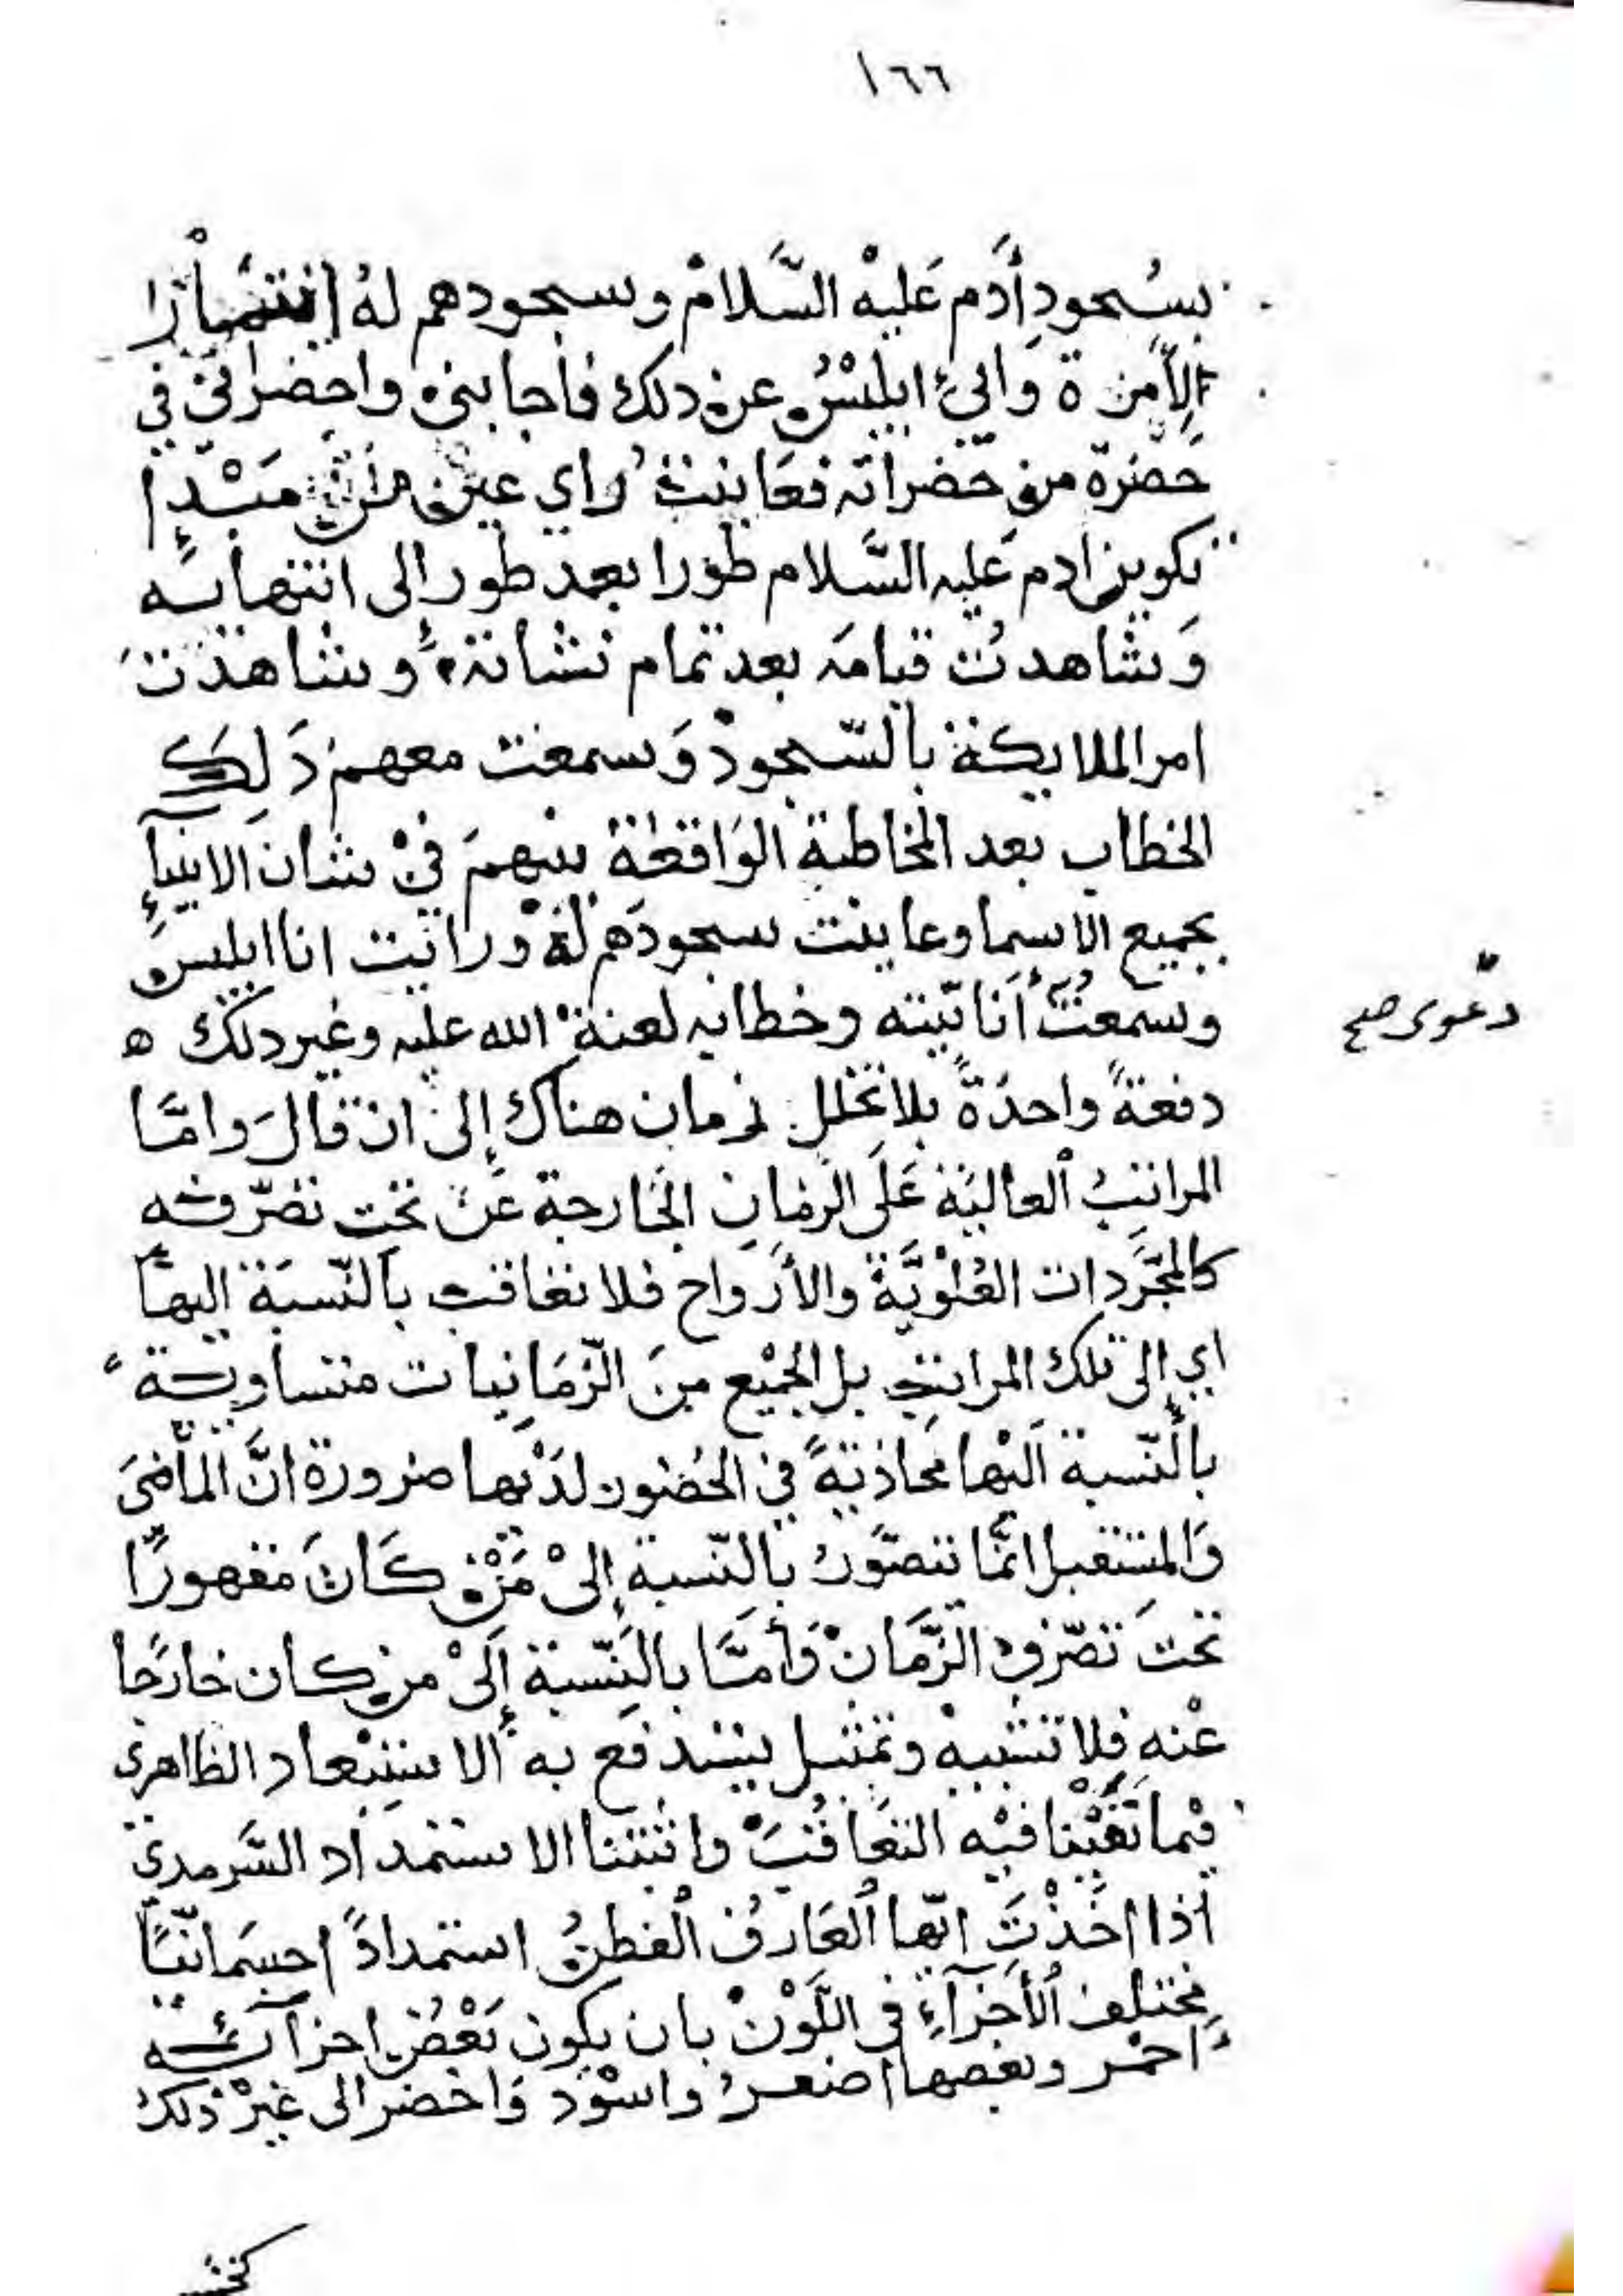 ١٦٦
بسُجودِ أدَم عَليْه السَّلامْ وسجودهم لهُ
وابيٰ ابليْسُ عن دلك فأجابني واحضرني في
حَضرة من حَضراته فعَاينت راي عين من مَبْدإ
تكوين ادم عَليه السَّلام طورا بعد طور الى انتهايه
وَشاهدتُ قيامَه بعد تمام نشاته وشاهدت
امر الملايكة بالسّجودْ وَسمعت معهم ذَلِك
الخطاب بعد المخاطبة الوَاقعَة بينهم فيْ شان الانبيآءِ
بجميع الاسما وعاينت سجودَهم لهْ ورايت انا ابليس
وسمعتُ أنانيّته وخطابه لعنة الله عليه وغير دلك ه
دعوى صح
دفعةً واحدَةً بلا تخلل زمان هناك إلى ان قالَ وامّا
المراتبُ العاليَة عَلَى الزمَانِ الخَارجة عَن تحت تصرّفه
كالمجَّردات العُلْوِيَّة والأرْواح فلا تعاقب بالنّسبَة اليهَا
اي إلى تلك المراتب بل الجمْيع مِنَ الزّمَانِيات متساوية
بالنّسبة اليْها محَاذيةً في الحُضور لدَيْها ضرورة انَّ المأضىَ
وَالمستقبل انمَّا يتصَّورُ بالنّسبة إلىْ مَنْ كَانَ مقهورًا
تحتَ تصّرفِ الزَّمَانْ وَأمّا بالنّسبة إلَىْ من كان خارجًا
عْنه فلا تشبيهْ وتمثيل يندفع به الاستبْعاد الظاهري
فيْما نَفيْنا فيْه التعَاقُبَ واثبتنا الاستمداد السَّرمديّ
اذا اخَذْتَ ايّها العَارفُ الفطنُ استمدادًا جسمَانيًّا
مختلف الأجزَآءِ في اللَّوْنْ بان يكون بَعْضُ اجزآئه
احمْر وبعضها اصفرُ واسْوَد وَاخضر الى غيْر ذلك